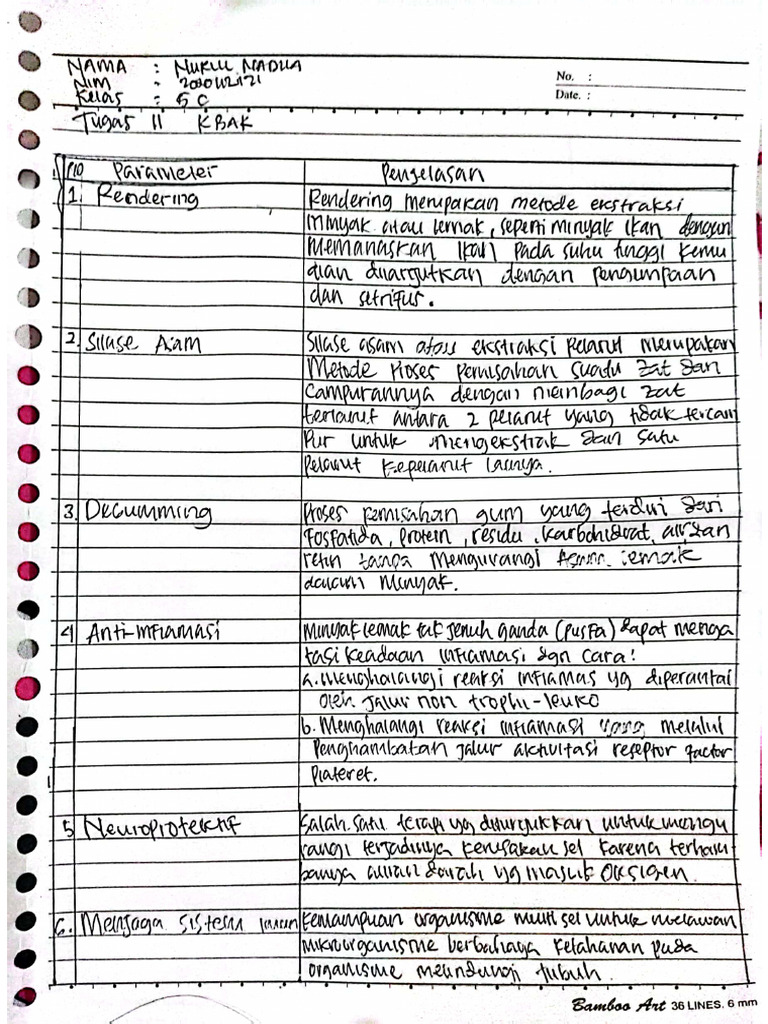 NAMA : NURUL NADHA
NIM :
Kelas : 5 C
No. :
Date. :
Tugas 11 KBAK
NO Parameter Penjelasan
1. Rendering Rendering merupakan metode ekstraksi
minyak atau lemak, seperti minyak ikan dengan
Memanaskan ikan pada suhu tinggi kemu
dian dilanjutkan dengan pengumpaan
dan setrifus.
2. Silase Asam Silase asam atau ekstraksi pelarut merupakan
Metode Proses pemisahan suatu zat dari
Campurannya dengan membagi zat
terlarut antara 2 pelarut yang tidak tercam
Pur untuk mengekstrak dari satu
Pelarut kepelarut lainnya.
3. Degumming Proses pemisahan gum yang terdiri dari
Fosfatida, protein, residu, karbohidrat, air, dan
resin tanpa mengurangi Asam lemak
dalam minyak.
4 Anti-Inflamasi Minyak lemak tak jenuh ganda (pusfa) dapat menga
tasi keadaan inflamasi dgn cara:
a. menghalangi reaksi inflamas yg diperantai
oleh jalur non trophi-leuko
b. Menghalangi reaksi inflamasi yang melalui
Penghambatan jalur aktivitasi reseptor factor
Plateret.
5 Neuroprotektif Salah satu terapi yg ditunjukkan untuk mengu
rangi terjadinya kerusakan sel karena terham
batnya aliran darah yg masuk Oksigen.
6. Menjaga sistem imun Kemampuan organisme multi sel untuk melawan
mikroorganisme berbahaya ketahanan pada
organisme melindungi tubuh.
Bamboo Art 36 LINES. 6 mm